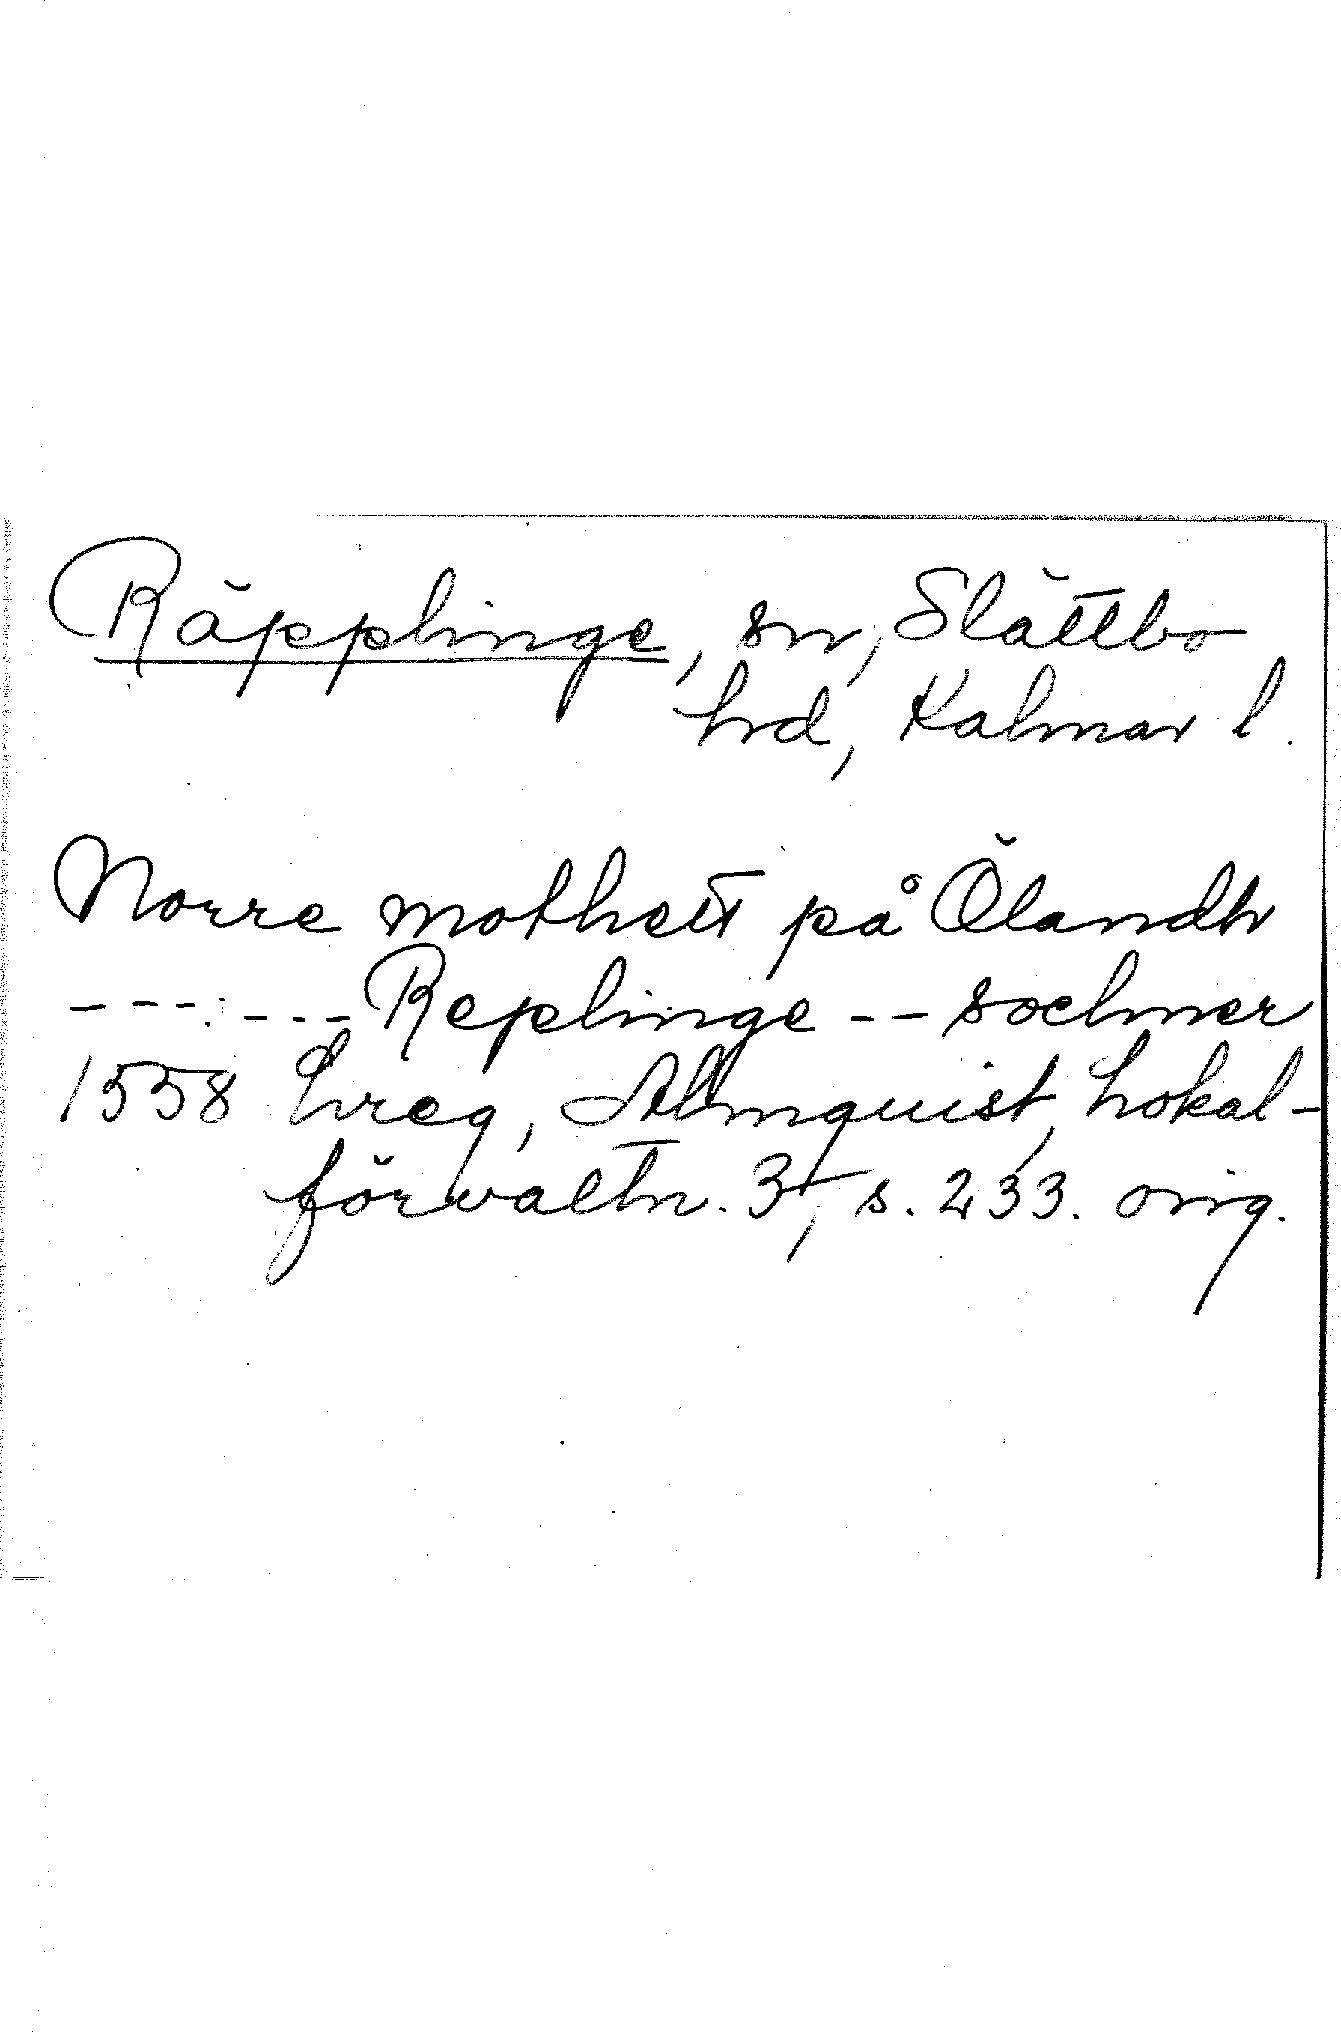 Räpplinge, sn, Slättbo
hd, Kalmar l.
Norre mothett på Ölandh
------- Replinge -- sochner
1558 Lreg, Almquist, Lokal-
förvaltn. 3, s. 233. orig.